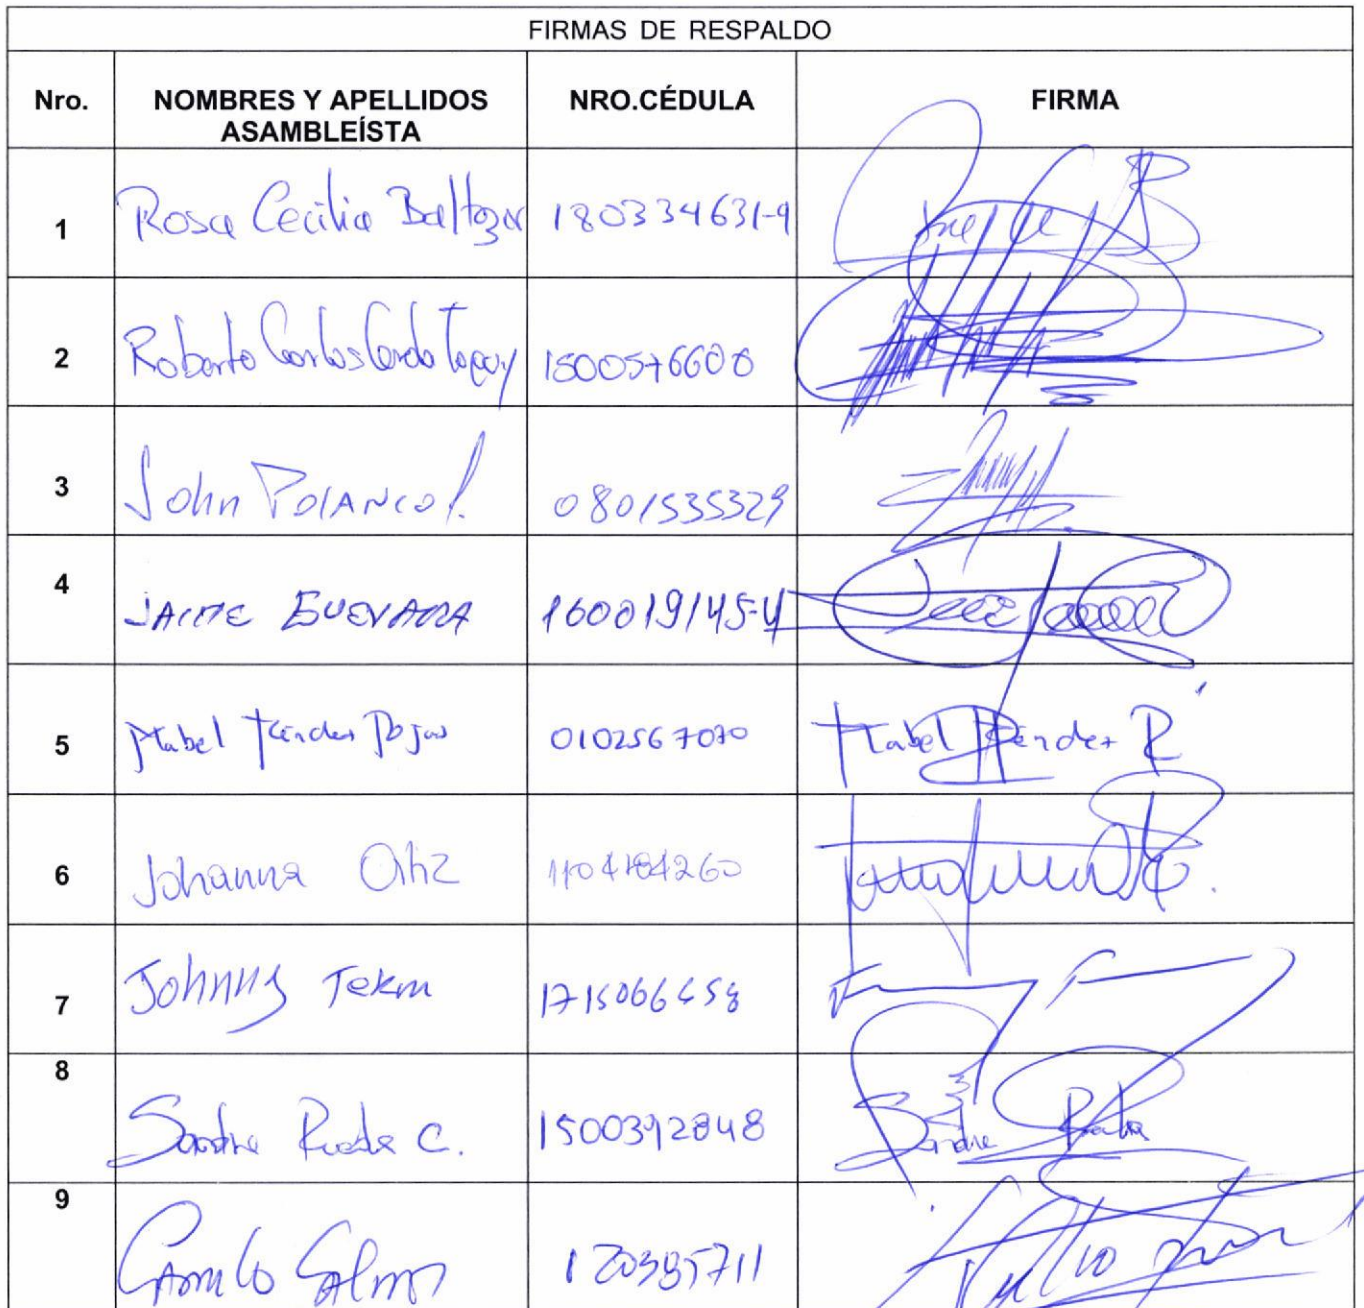 FIRMAS DE RESPALDO
Nro. NOMBRES Y APELLIDOS ASAMBLEÍSTA NRO.CÉDULA FIRMA
1 Rosa Cecilia Baltazar 180334631-9
2 Roberto Carlos 1500576600
3 John Polanco 0801535329
4 JAIME GUEVARA 160019145-4
5 Mabel Méndez Rojas 0102567070 Mabel Méndez R
6 Johanna Ortiz 1104184260
7 Johnny Teran
8 Sandra Rueda C. 1500392848 Sandra Rueda
9 Camilo Salinas